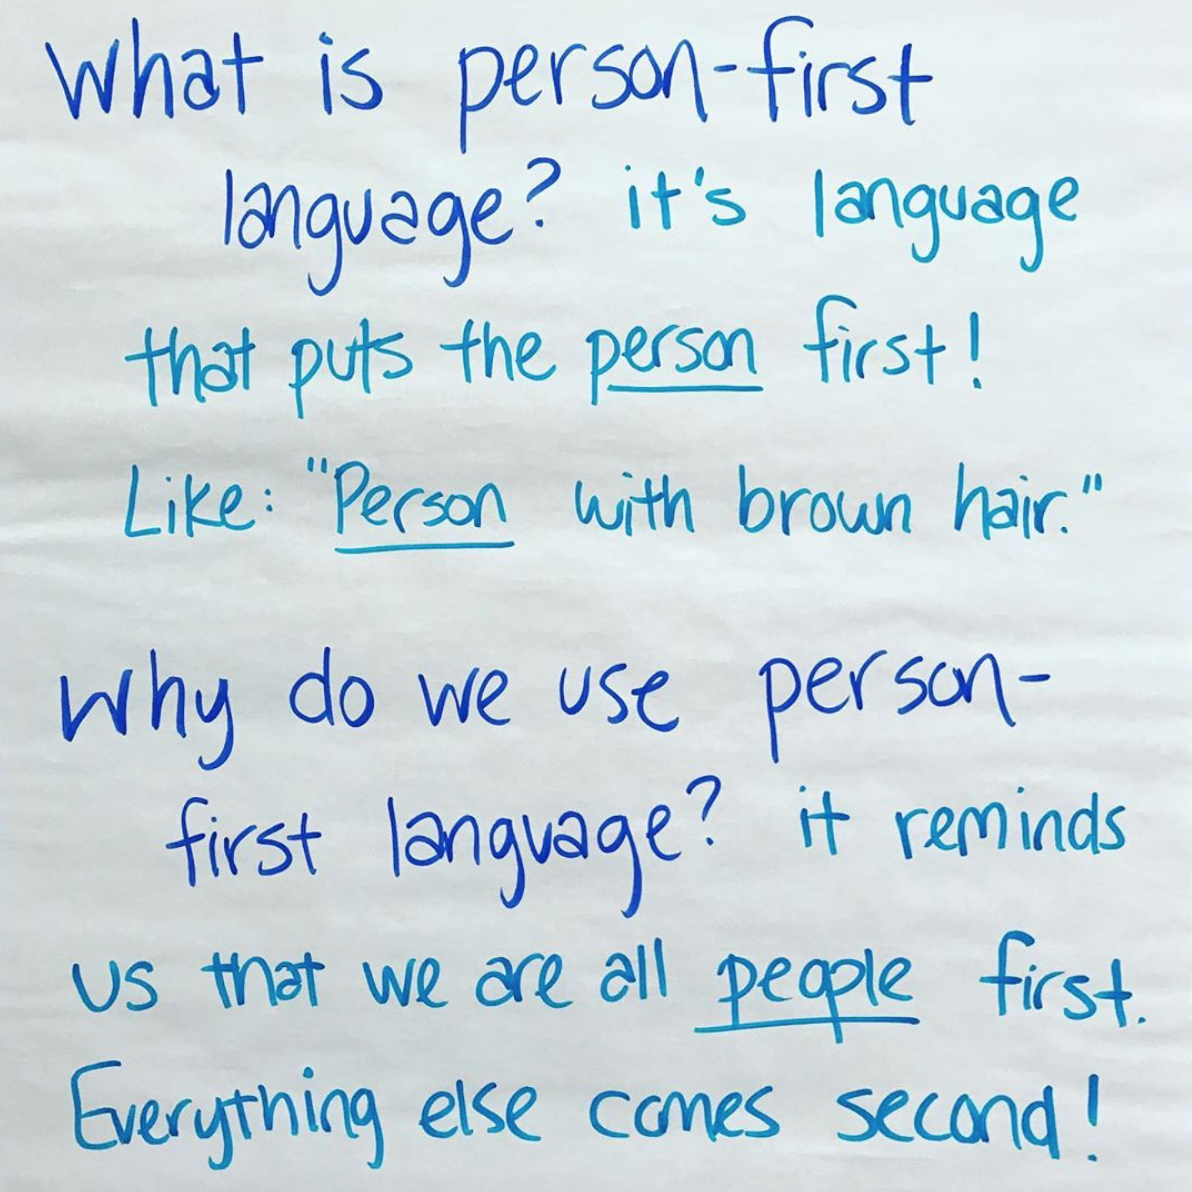 What is person-first
language? it's language
that puts the person first!
Like: "Person with brown hair."
Why do we use person-
first language? it reminds
us that we are all people first.
Everything else comes second!